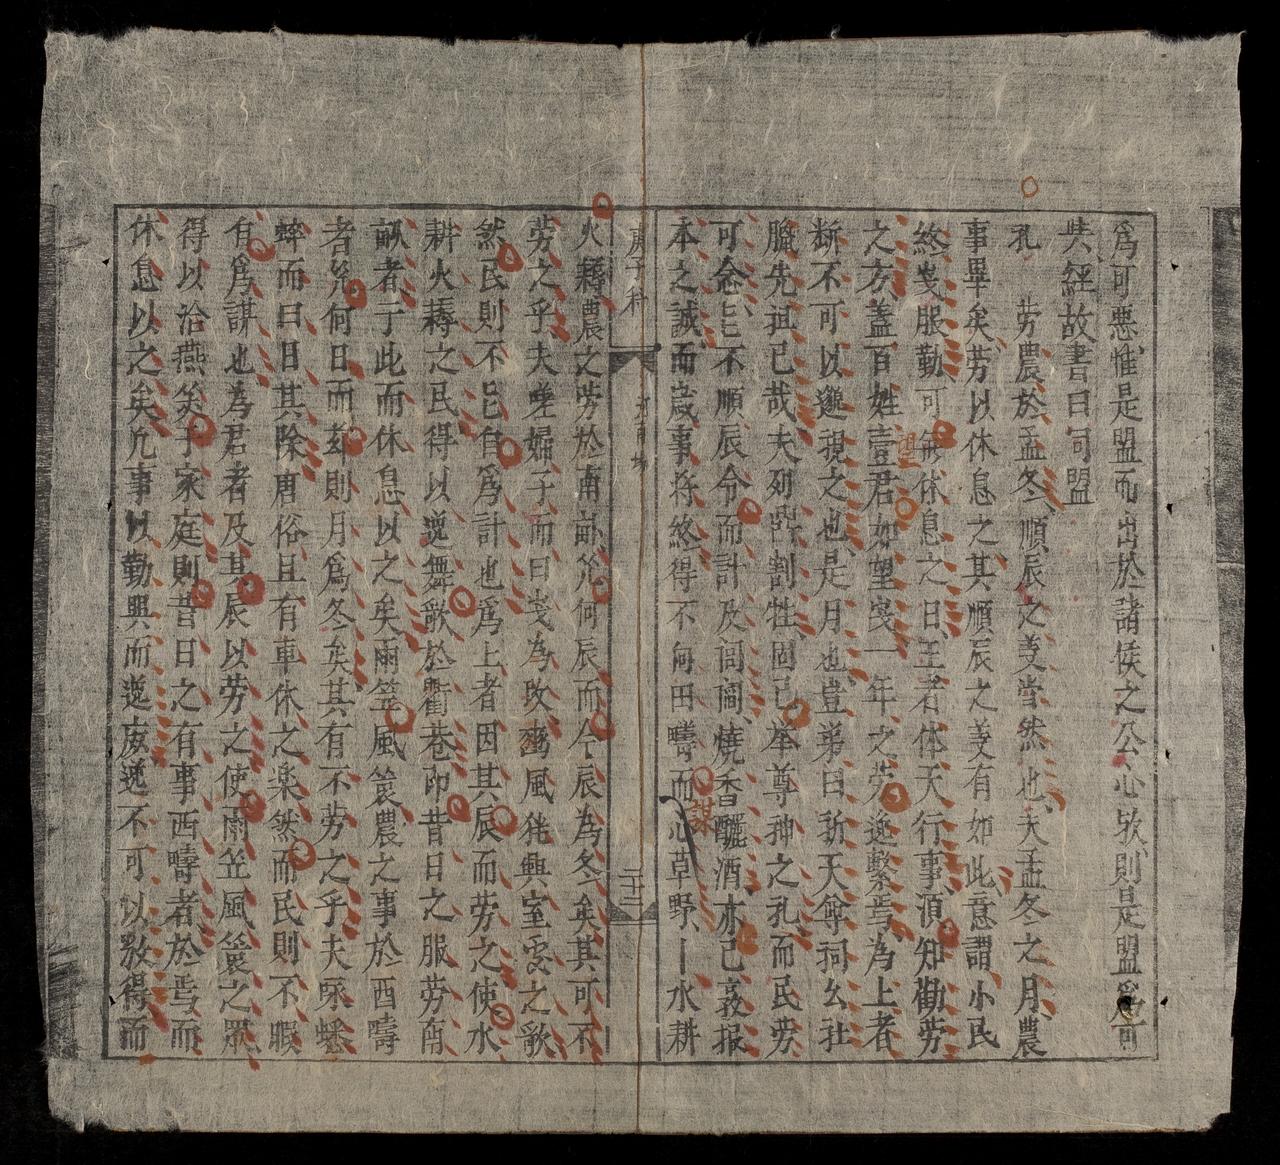 爲可惡惟是盟而出於諸侯之公心欤則是盟爲可
共經故書曰同盟
孔　労農於孟冬順辰之义当然也夫孟冬之月農
事畢矣劳以休息之其順辰之义有如此意謂小民
終岁服勤可無休息之日王者体天行事須知勸劳
之方蓋百姓壹君如望岁一年之劳迄繫焉為上者
断不可以邈視之也是月也豈第曰祈天
臘先祖已哉夫列鼎割牲固已举尊神之礼而民劳
可念邑不順辰令而計及閭閻燒香釃酒亦已敦报
本之誠而歳事将終得不向田疇而心草野水耕
庚子科
二十三
火耨農之劳於南畝者何辰而今辰為冬矣其可不
劳之乎夫嗟婦子而曰岁為改豳風能興室处之歌
然民則不邑自爲計也爲上者因其辰而劳之使水
耕火耨之民得以遊舞歌於衢巷即昔日之服劳南
畝者于此而休息以之矣雨笠風簑農之事於西疇
者果何日而玆則月爲冬矣其有不劳之乎夫咏蟋
蟀而曰日其除唐俗且有車休之楽然而民則不暇
有爲謀也為君者及其辰以劳之使雨笠風簑之眾
得以洽燕笑于家庭則昔日之有事西疇者於焉而
休息以之矣凡事以勤興而逸廢逸不可以数得而
望
謀